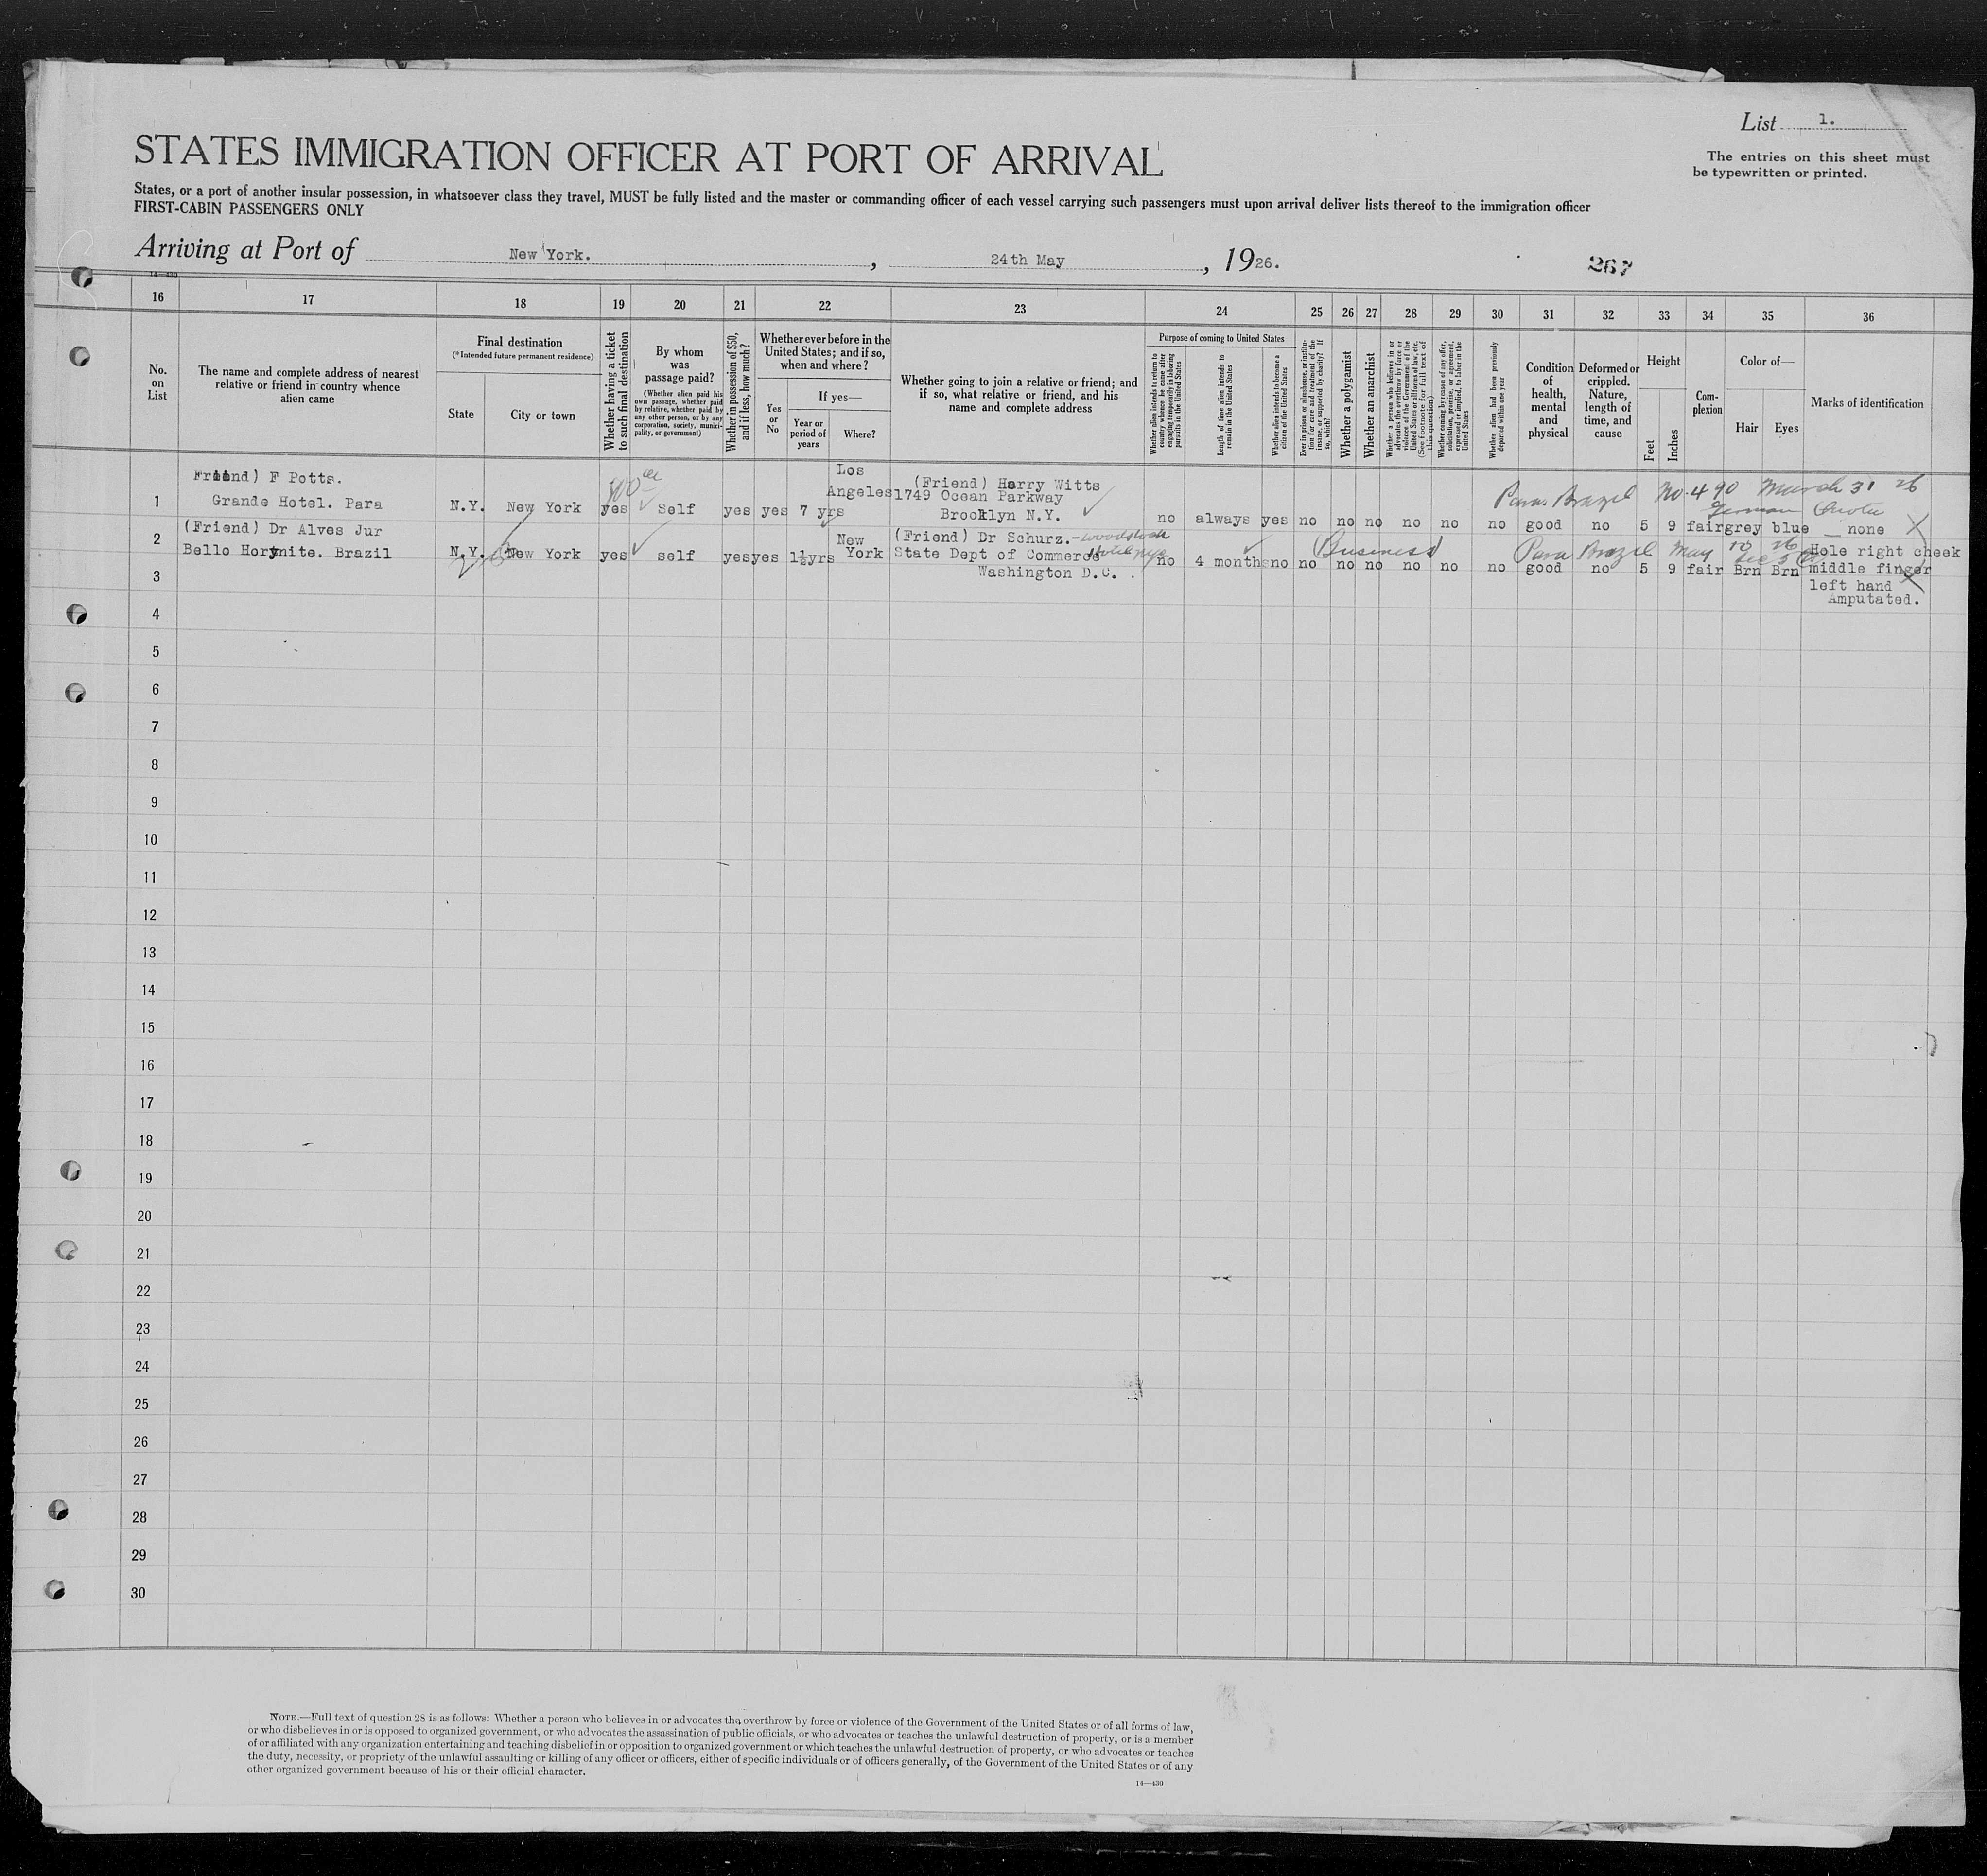 List 1.
The entries on this sheet must
be typewritten or printed.
STATES IMMIGRATION OFFICER AT PORT OF ARRIVAL
States, or a port of another insular possession, in whatsoever class they travel, MUST be fully listed and the master or commanding officer of each vessel carrying such passengers must upon arrival deliver lists thereof to the immigration officer
FIRST-CABIN PASSENGERS ONLY
Arriving at Port of New York. , 24th May , 1926.
267
14—430
16 17 18 19 20 21 22 23 24 25 26 27 28 29 30 31 32 33 34 35 36
No.
on
List
The name and complete address of nearest
relative or friend in country whence
alien came
Final destination
(*Intended future permanent residence)
State
City or town
Whether having a ticket
to such final destination
By whom
was
passage paid?
(Whether alien paid his
own passage, whether paid
by relative, whether paid by
any other person, or by any
corporation, society, munici-
pality, or government)
Whether in possession of $50,
and if less, how much?
Whether ever before in the
United States; and if so,
when and where?
Yes
or
No
If yes—
Year or
period of
years
Where?
Whether going to join a relative or friend; and
if so, what relative or friend, and his
name and complete address
Purpose of coming to United States
Whether alien intends to return to
country whence he came after
engaging temporarily in laboring
pursuits in the United States
Length of time alien intends to
remain in the United States
Whether alien intends to become a
citizen of the United States
Ever in prison or almshouse, or institu-
tion for care and treatment of the
insane, or supported by charity? If
so, which?
Whether a polygamist
Whether an anarchist
Whether a person who believes in or
advocates the overthrow by force or
violence of the Government of the
United States or all forms of law, etc.
(See footnote for full text of
this question)
Whether coming by reason of any offer,
solicitation, promise, or agreement,
expressed or implied, to labor in the
United States
Whether alien had been previously
deported within one year
Condition
of
health,
mental
and
physical
Deformed or
crippled.
Nature,
length of
time, and
cause
Height
Feet
Inches
Com-
plexion
Color of—
Hair
Eyes
Marks of identification
Friend) F Potts.
Los
(Friend) Harry Witts
Para. Brazil No. 490 March 31 26
1 Grande Hotel. Para N.Y. New York yes self yes yes 7 yrs Angeles 1749 Ocean Parkway
German Quota
Brooklyn N.Y. no always yes no no no no no no good no 5 9 fair grey blue none X
(Friend) Dr Alves Jur
New
(Friend) Dr Schurz.-Woodstock
Business
Para Brazil May 10 26
Hole right cheek
2 Bello Horynite. Brazil N.Y. New York yes self yes yes 1½yrs York State Dept of Commerce Hotel NYC
Sec 3
Washington D.C. no 4 months no no no no no no no good no 5 9 fair Brn Brn middle finger
left hand X
amputated.
3
4
5
6
7
8
9
10
11
12
13
14
15
16
17
18
19
20
21
22
23
24
25
26
27
28
29
30
NOTE.—Full text of question 28 is as follows: Whether a person who believes in or advocates the overthrow by force or violence of the Government of the United States or of all forms of law,
or who disbelieves in or is opposed to organized government, or who advocates the assassination of public officials, or who advocates or teaches the unlawful destruction of property, or is a member
of or affiliated with any organization entertaining and teaching disbelief in or opposition to organized government or which teaches the unlawful destruction of property, or who advocates or teaches
the duty, necessity, or propriety of the unlawful assaulting or killing of any officer or officers, either of specific individuals or of officers generally, of the Government of the United States or of any
other organized government because of his or their official character.
14—430